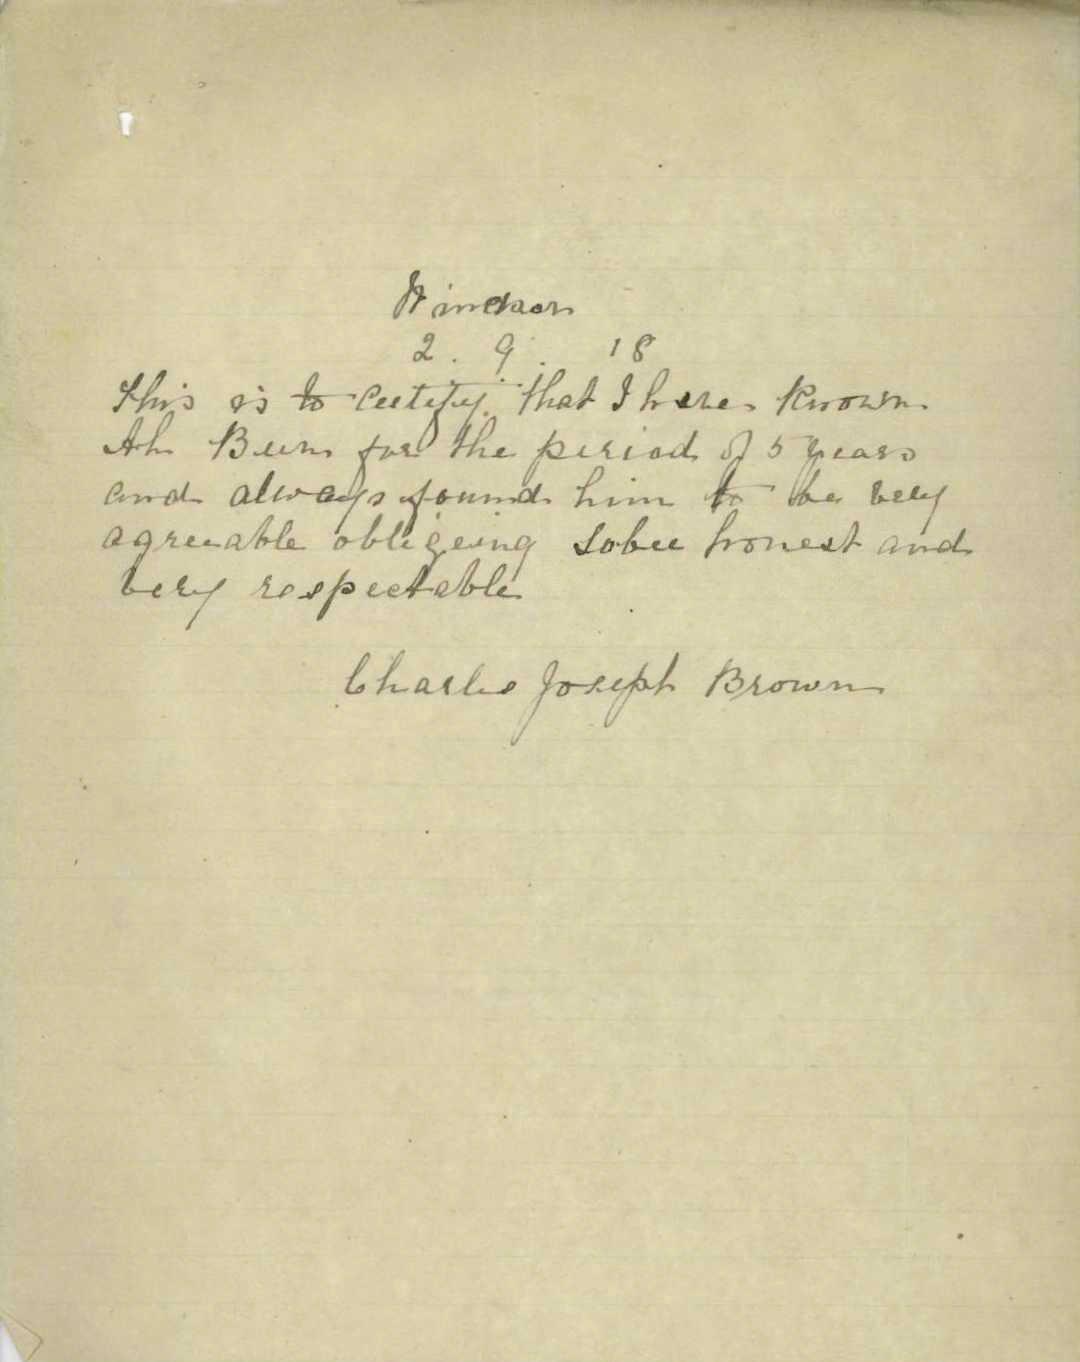 Windsor
2. 9. 18
This is to certify that I have known
Ah Bun for the period of 5 years
and always found him to be very
agreeable obligeing sober honest and
very respectable
Charles Joseph Brown